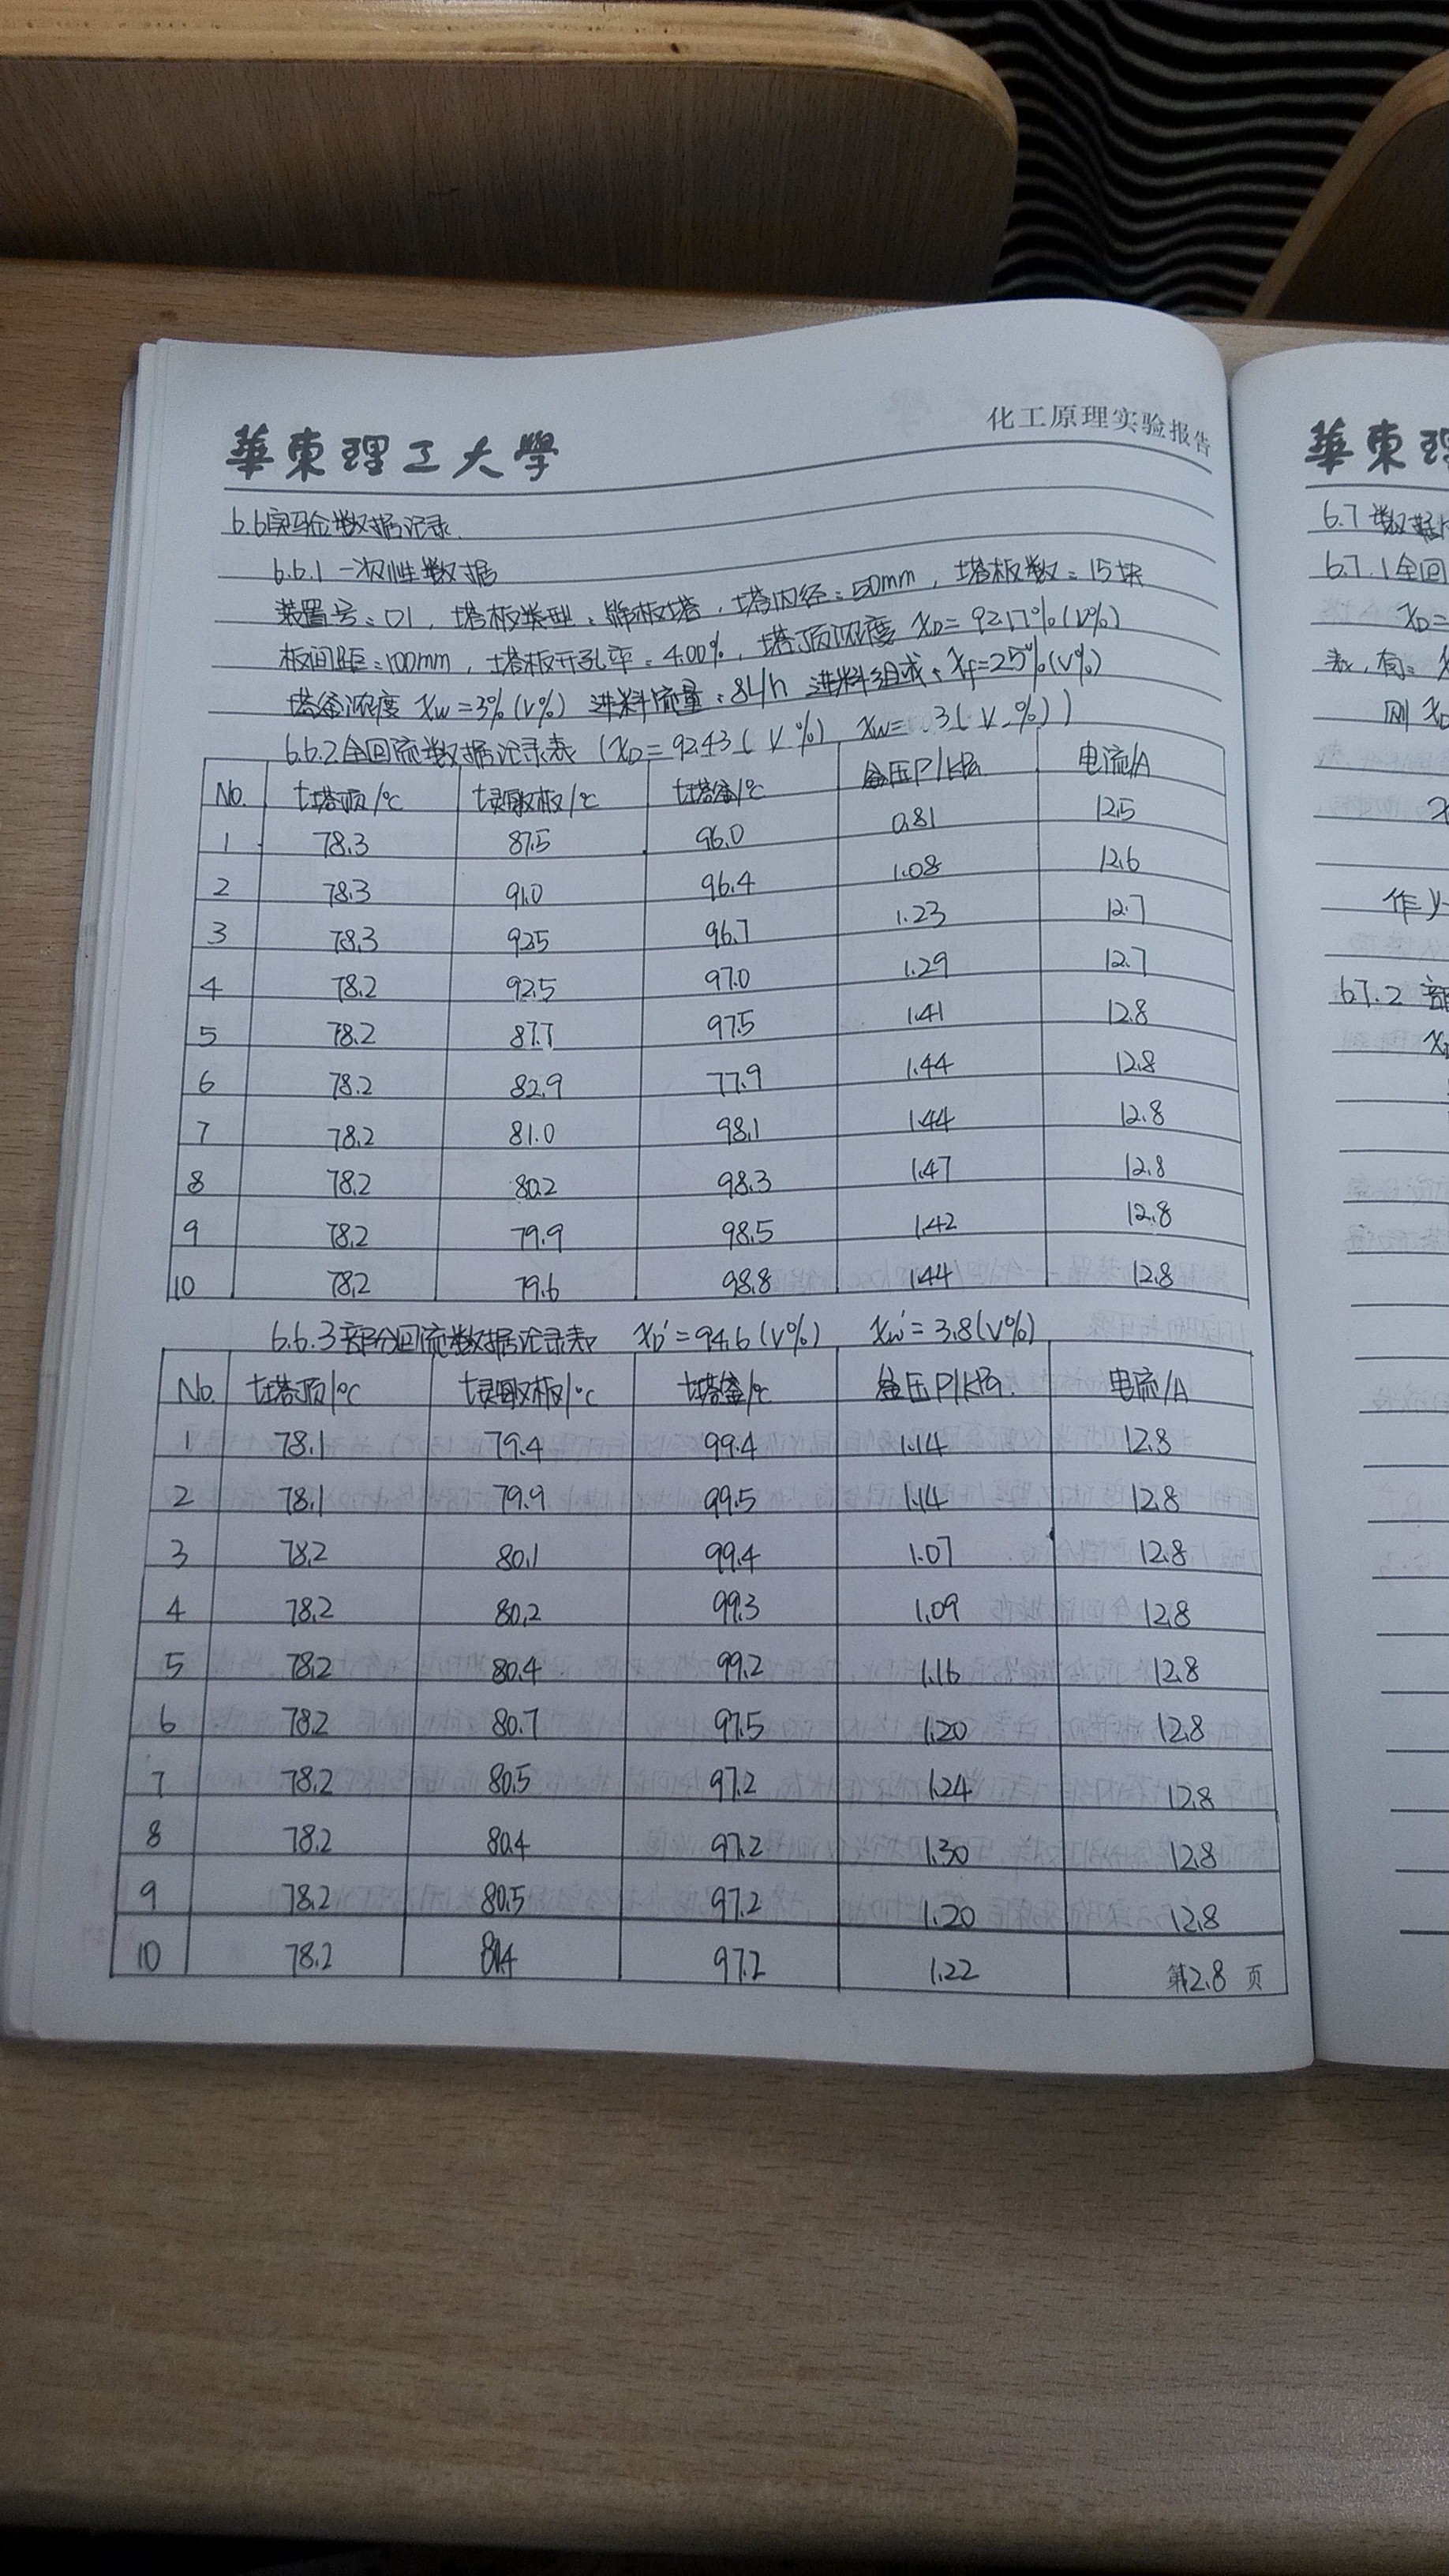 化工原理实验报告
華東理工大學
6.6实验数据记录
6.6.1 一次性数据
装置号：01，塔板类型：筛板塔，塔内径：50mm，塔板数：15块
板间距：100mm，塔板开孔率：4.00%，塔顶浓度 XD=92.17%(V%)
塔釜浓度 XW=3%(V%) 进料流量：8L/h 进料组成：Xf=25%(V%)
6.6.2 全回流数据记录表 (XD=92.43(V%) XW=3(V%))
No. t塔顶/℃ t灵敏板/℃ t塔釜/℃ 釜压P/kPa 电流/A
1 78.3 87.5 96.0 0.81 12.5
2 78.3 91.0 96.4 1.08 12.6
3 78.3 92.5 96.7 1.23 12.7
4 78.2 92.5 97.0 1.29 12.7
5 78.2 87.7 97.5 1.41 12.8
6 78.2 82.9 77.9 1.44 12.8
7 78.2 81.0 98.1 1.44 12.8
8 78.2 80.2 98.3 1.47 12.8
9 78.2 79.9 98.5 1.42 12.8
10 78.2 79.6 98.8 1.44 12.8
6.6.3 部分回流数据记录表 XD'=94.6(V%) XW'=3.8(V%)
No. t塔顶/℃ t灵敏板/℃ t塔釜/℃ 釜压P/kPa. 电流/A
1 78.1 79.4 99.4 1.14 12.8
2 78.1 79.9 99.5 1.14 12.8
3 78.2 80.1 99.4 1.07 12.8
4 78.2 80.2 99.3 1.09 12.8
5 78.2 80.4 99.2 1.16 12.8
6 78.2 80.7 97.5 1.20 12.8
7 78.2 80.5 97.2 1.24 12.8
8 78.2 80.4 97.2 1.30 12.8
9 78.2 80.5 97.2 1.20 12.8
10 78.2 97.2 1.22 12.8
第 页
華東理
6.7 数据
6.7.1 全回
XD=
表，有：
则
作y-
6.7.2 部